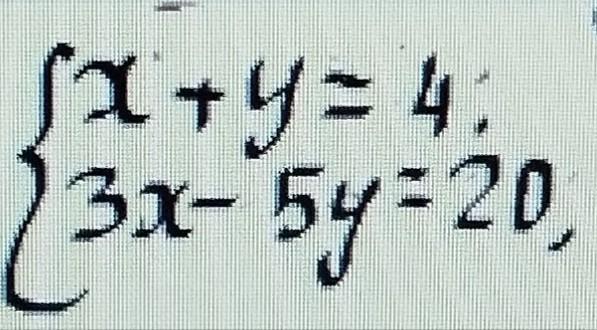 x + y = 4;
3x - 5y = 20,